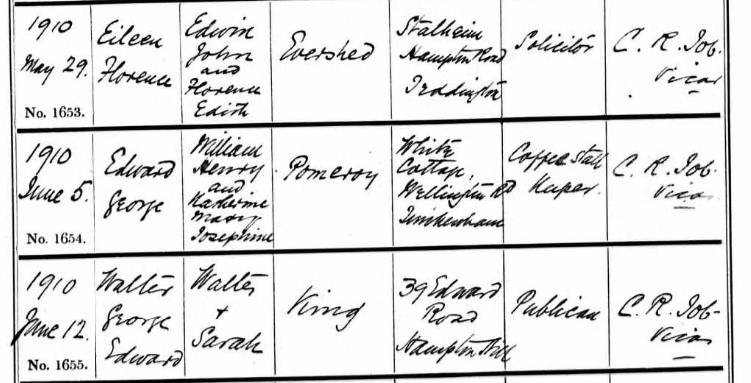 1910
May 29.
No. 1653.
Eileen
Florence
Edwin
John
and
Florence
Edith
Evershed
Stalheim
Hampton Road
Teddington
Solicitor
C. R. Job.
Vicar
1910
June 5.
No. 1654.
Edward
George
William
Henry
and
Katherine
Mary
Josephine
Pomeroy
White
Cottage,
Wellington Rd
Twickenham
Coffee Stall
Keeper.
C. R. Job.
Vicar
1910
June 12.
No. 1655.
Walter
George
Edward
Walter
+
Sarah
King
39 Edward
Road
Hampton Hill
Publican
C. R. Job-
Vicar